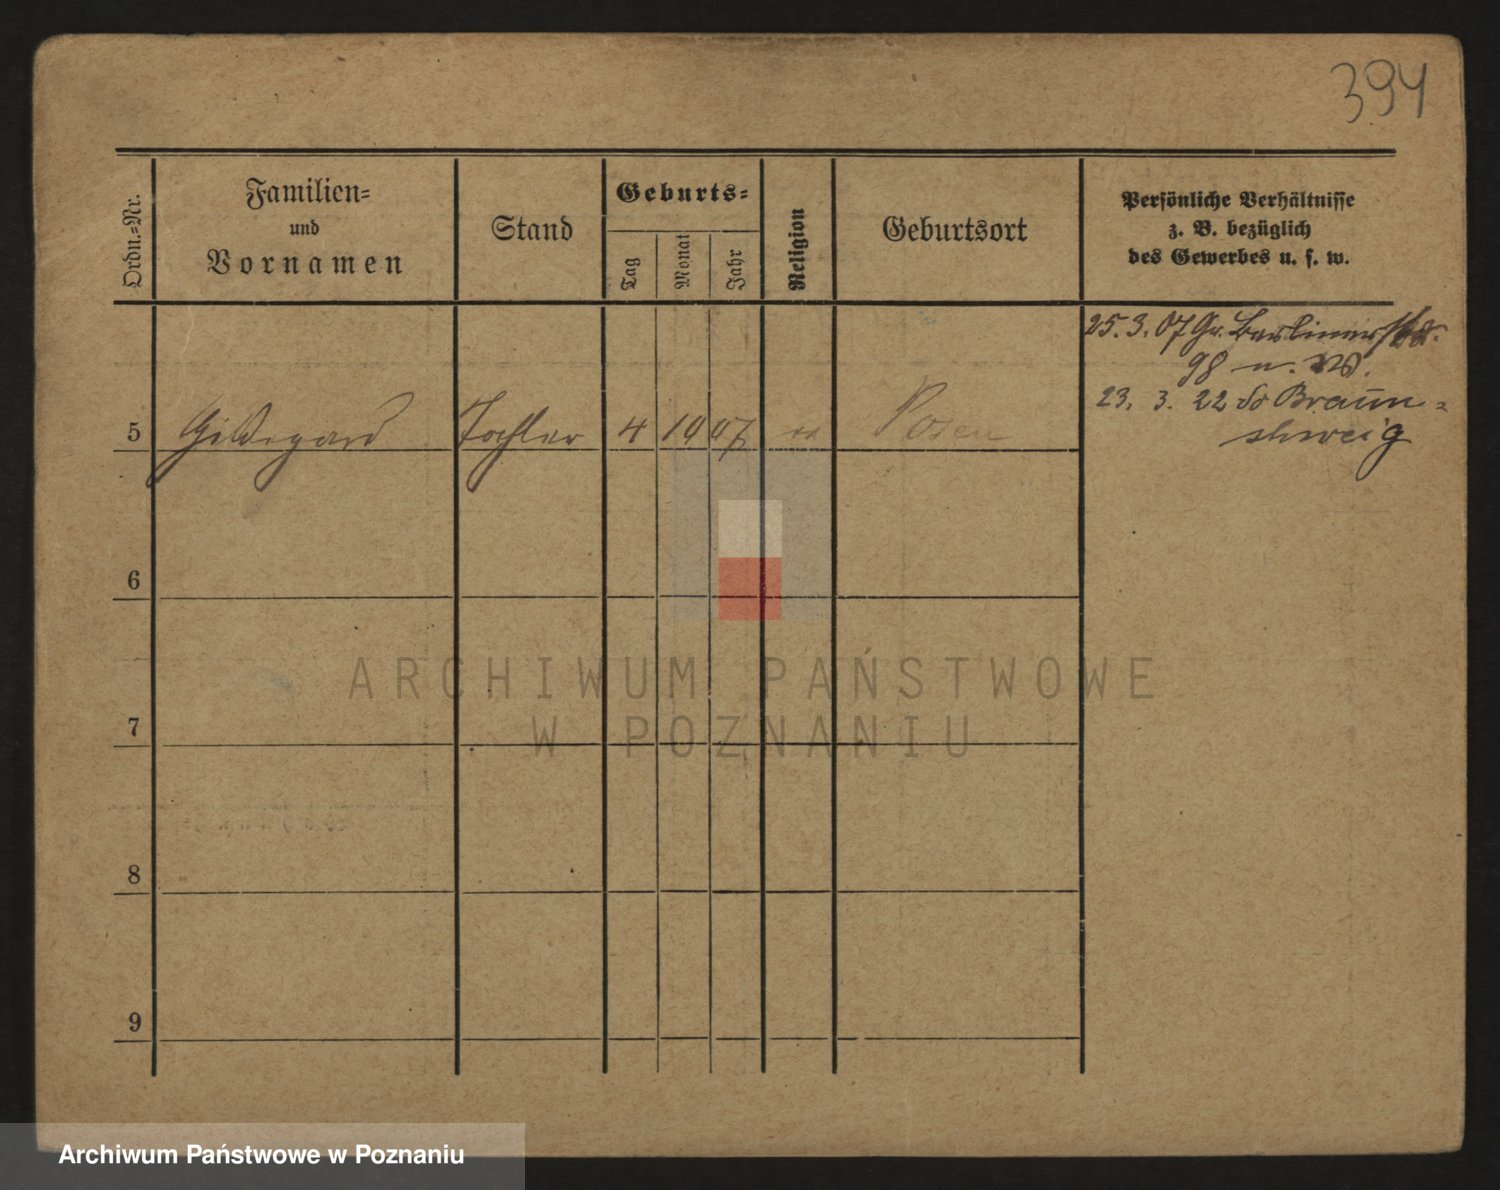 394
Ordn.-Nr.
Familien-
und
Vornamen
Stand
Geburts-
Tag
Monat
Jahr
Religion
Geburtsort
Persönliche Verhältnisse
z. B. bezüglich
des Gewerbes u. s. w.
25.3.07 Gr. Berlinerstr.
98 n. W.
23. 3. 22 Braun-
shweig
5 Hildegard Tochter 4 10 07 Posen
6
7
8
9
ARCHIWUM PAŃSTWOWE
W POZNANIU
Archiwum Państwowe w Poznaniu